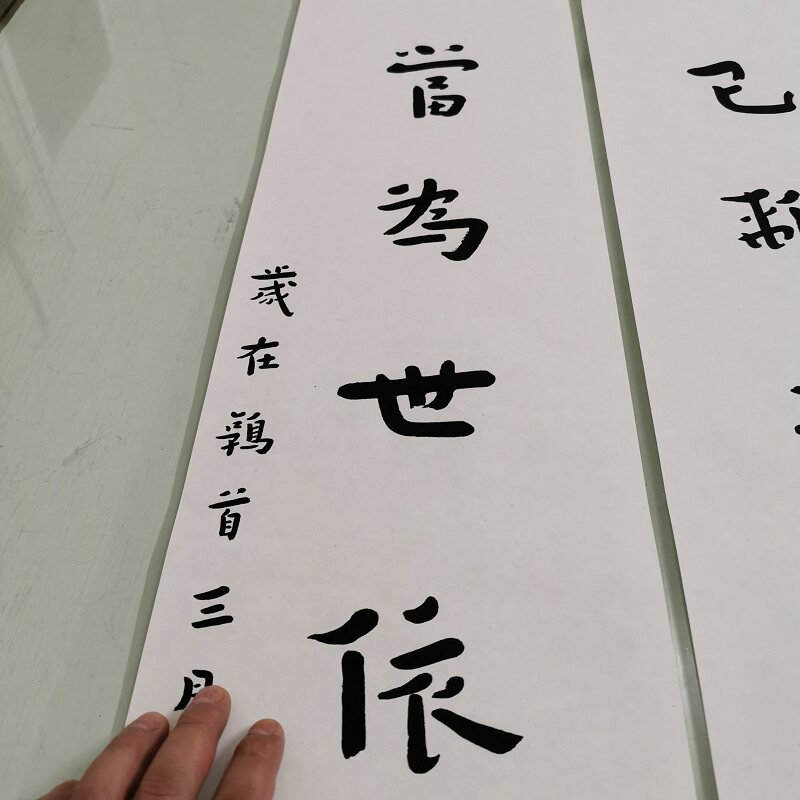 已
當為世依
歲在鶉首三月